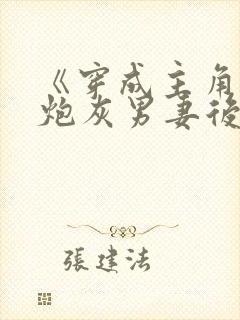 《穿成主角
炮灰男妻後
張建法